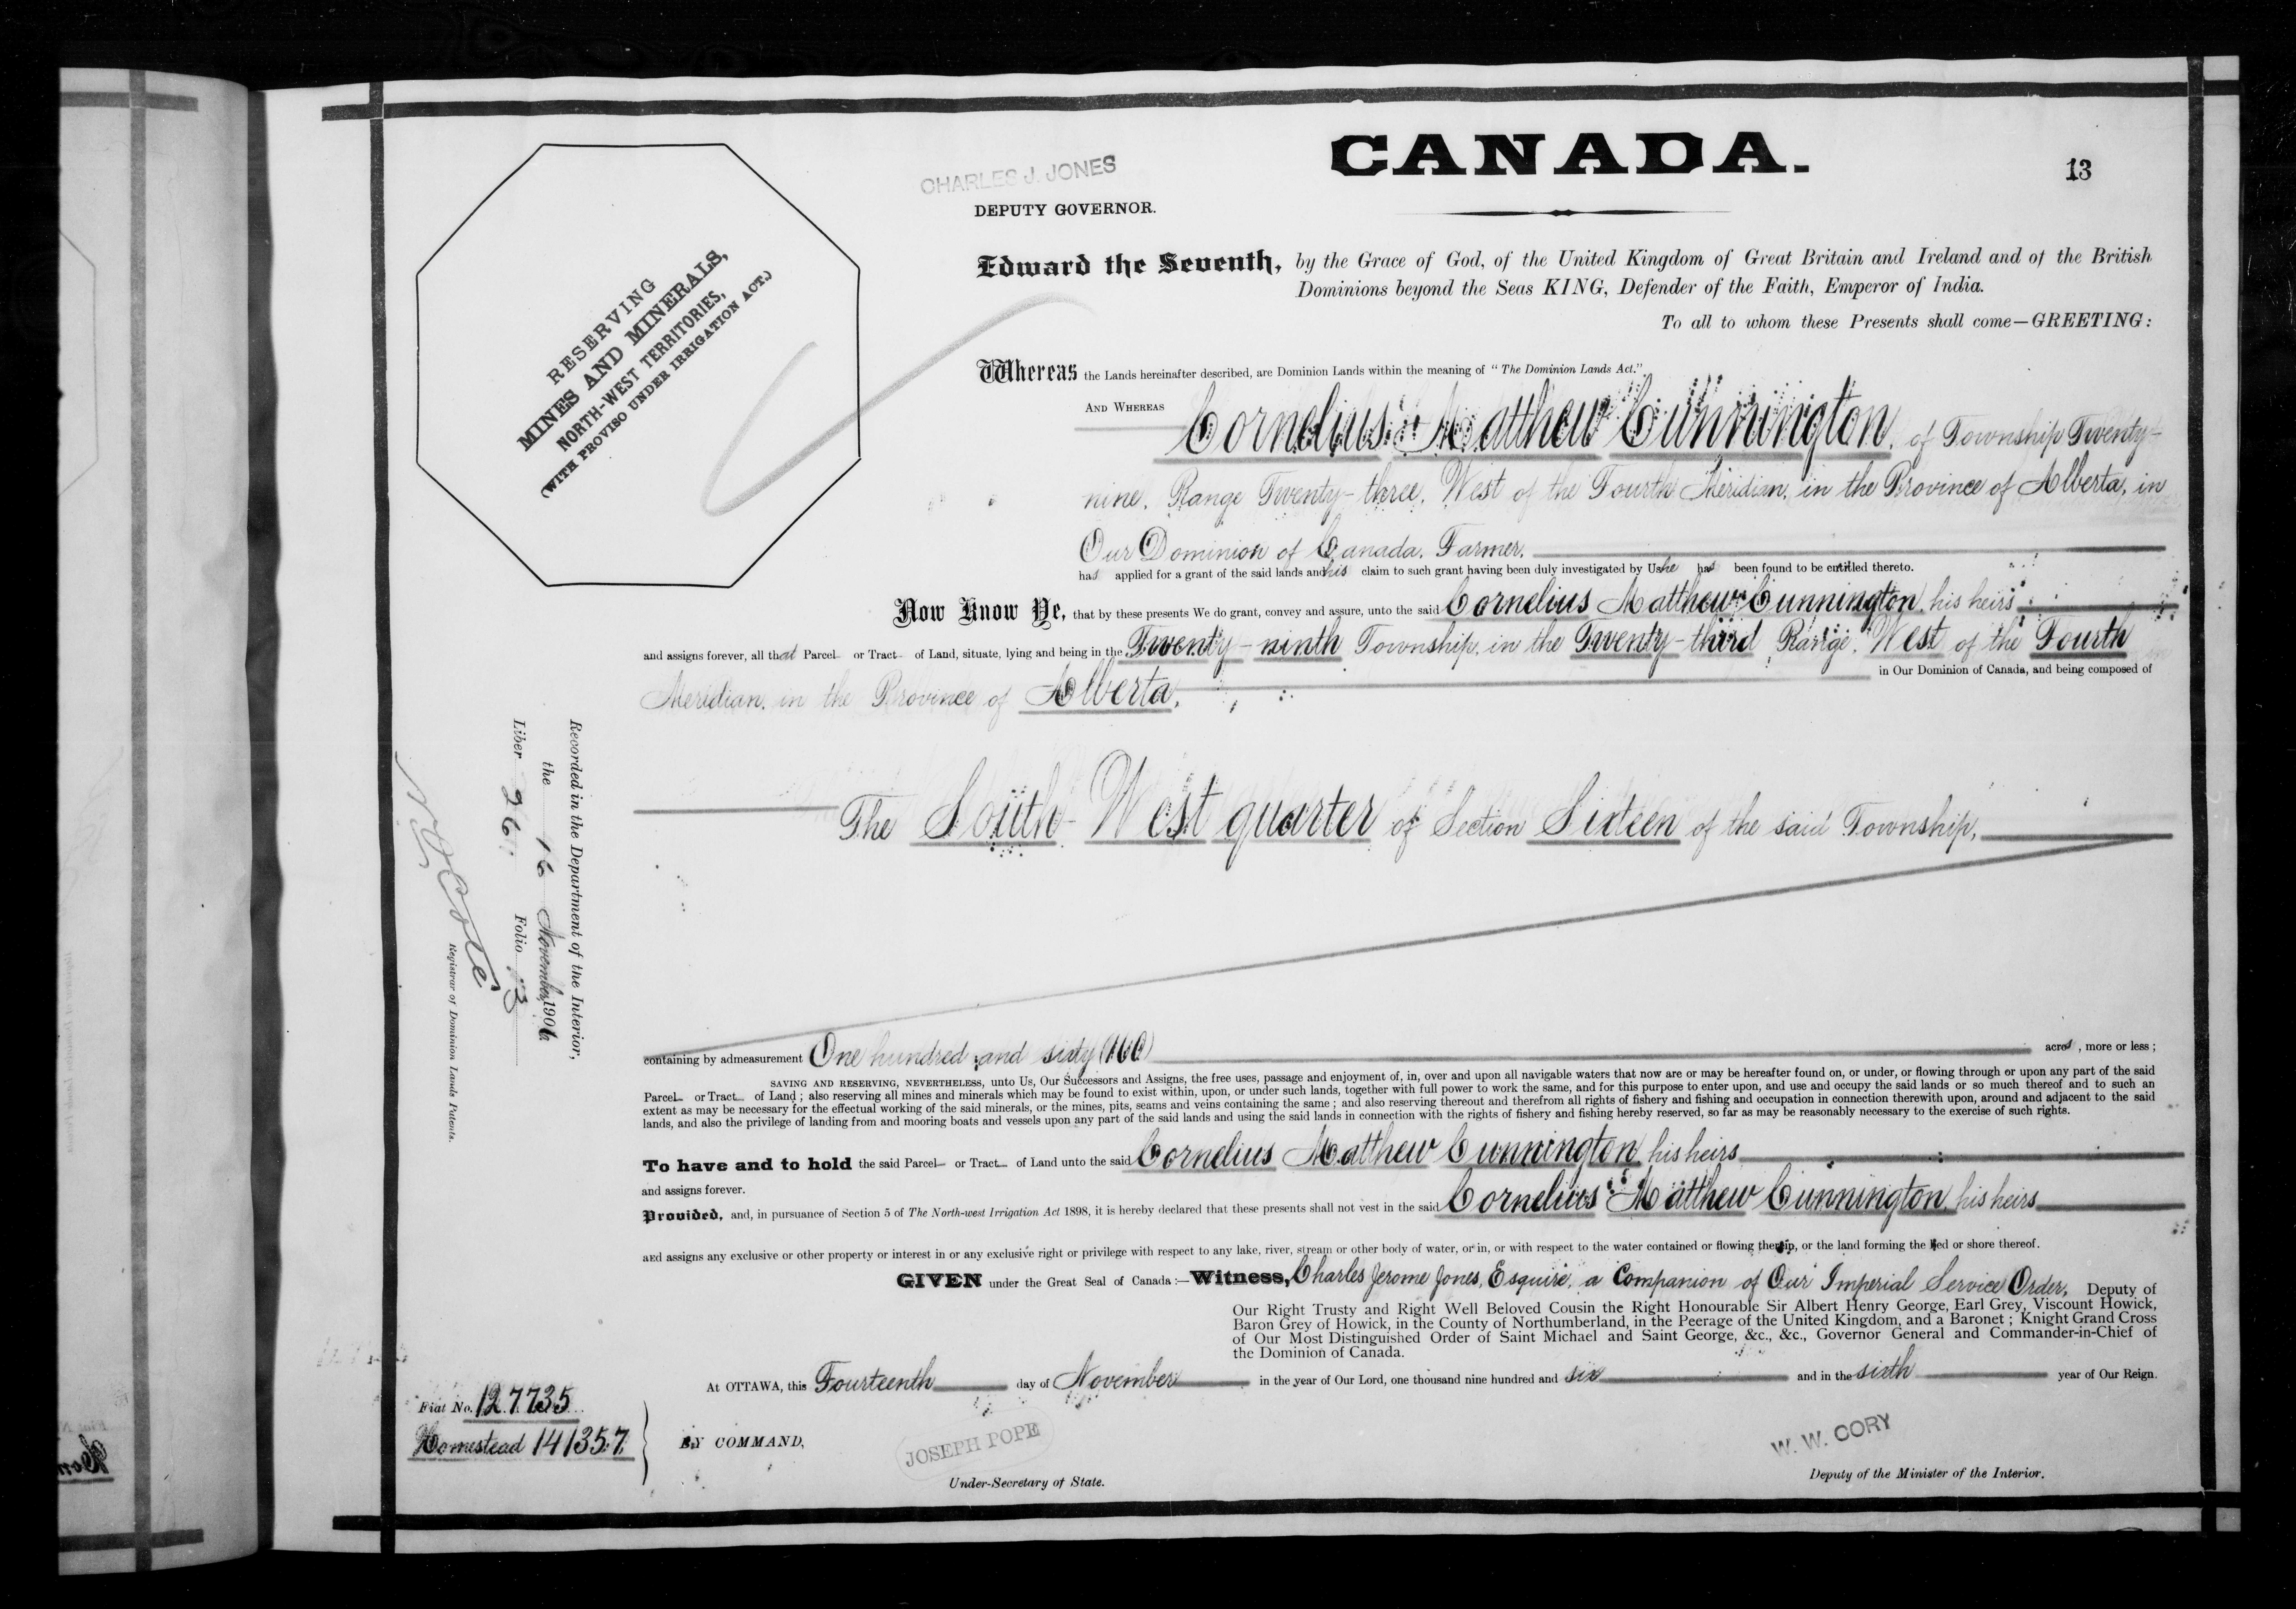 CANADA.
13
CHARLES J. JONES
DEPUTY GOVERNOR.
RESERVING
MINES AND MINERALS,
NORTH-WEST TERRITORIES,
(WITH PROVISO UNDER IRRIGATION ACT.)
Edward the Seventh, by the Grace of God, of the United Kingdom of Great Britain and Ireland and of the British
Dominions beyond the Seas KING, Defender of the Faith, Emperor of India.
To all to whom these Presents shall come—GREETING:
Whereas the Lands hereinafter described, are Dominion Lands within the meaning of "The Dominion Lands Act."
AND WHEREAS Cornelius Matthew Cunnington, of Township Twenty-
nine, Range Twenty-three, West of the Fourth Meridian, in the Province of Alberta, in
Our Dominion of Canada, Farmer,
has applied for a grant of the said lands and his claim to such grant having been duly investigated by Us he has been found to be entitled thereto.
Now Know Ye, that by these presents We do grant, convey and assure, unto the said Cornelius Matthew Cunnington, his heirs
and assigns forever, all that Parcel or Tract of Land, situate, lying and being in the Twenty-ninth Township, in the Twenty-third Range, West of the Fourth
Meridian, in the Province of Alberta, in Our Dominion of Canada, and being composed of
The South-West quarter of Section Sixteen of the said Township,
containing by admeasurement One hundred and sixty (160) acres, more or less;
SAVING AND RESERVING, NEVERTHELESS, unto Us, Our Successors and Assigns, the free uses, passage and enjoyment of, in, over and upon all navigable waters that now are or may be hereafter found on, or under, or flowing through or upon any part of the said
Parcel or Tract of Land; also reserving all mines and minerals which may be found to exist within, upon, or under such lands, together with full power to work the same, and for this purpose to enter upon, and use and occupy the said lands or so much thereof and to such an
extent as may be necessary for the effectual working of the said minerals, or the mines, pits, seams and veins containing the same; and also reserving thereout and therefrom all rights of fishery and fishing and occupation in connection therewith upon, around and adjacent to the said
lands, and also the privilege of landing from and mooring boats and vessels upon any part of the said lands and using the said lands in connection with the rights of fishery and fishing hereby reserved, so far as may be reasonably necessary to the exercise of such rights.
To have and to hold the said Parcel or Tract of Land unto the said Cornelius Matthew Cunnington, his heirs
and assigns forever.
Provided, and, in pursuance of Section 5 of The North-west Irrigation Act 1898, it is hereby declared that these presents shall not vest in the said Cornelius Matthew Cunnington, his heirs
and assigns any exclusive or other property or interest in or any exclusive right or privilege with respect to any lake, river, stream or other body of water, or in, or with respect to the water contained or flowing therein, or the land forming the bed or shore thereof.
GIVEN under the Great Seal of Canada:—Witness, Charles Jerome Jones, Esquire, a Companion of Our Imperial Service Order, Deputy of
Our Right Trusty and Right Well Beloved Cousin the Right Honourable Sir Albert Henry George, Earl Grey, Viscount Howick,
Baron Grey of Howick, in the County of Northumberland, in the Peerage of the United Kingdom, and a Baronet; Knight Grand Cross
of Our Most Distinguished Order of Saint Michael and Saint George, &c., &c., Governor General and Commander-in-Chief of
the Dominion of Canada.
At OTTAWA, this Fourteenth day of November in the year of Our Lord, one thousand nine hundred and six and in the sixth year of Our Reign.
Fiat No. 127735
Homestead 141357
BY COMMAND,
JOSEPH POPE
Under-Secretary of State.
W. W. CORY
Deputy of the Minister of the Interior.
Recorded in the Department of the Interior,
the 16 November, 1906
Liber 261 Folio 13
Registrar of Dominion Lands Patents.